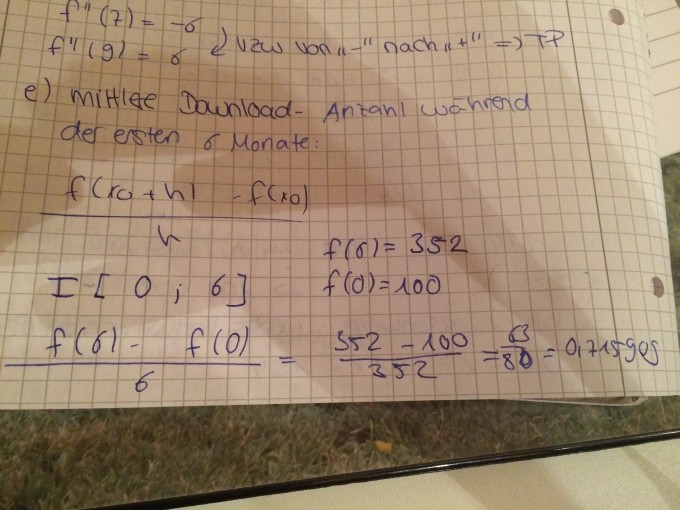 f"(7) = -6
f"(9) = 6 VZW von „-" nach „+" => TP
e) mittlere Download- Anzahl während
der ersten 6 Monate:
f(x0 + h) - f(x0)
h
f(6) = 352
I [ 0 ; 6 ]
f(0) = 100
f(6) - f(0)
6
=
352 - 100
352
= 63
88
= 0,715909